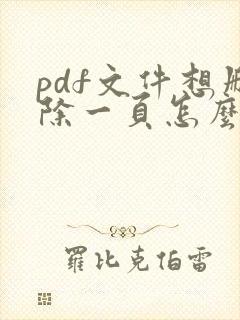 pdf文件想刪
除一頁怎麼
羅比克伯雷